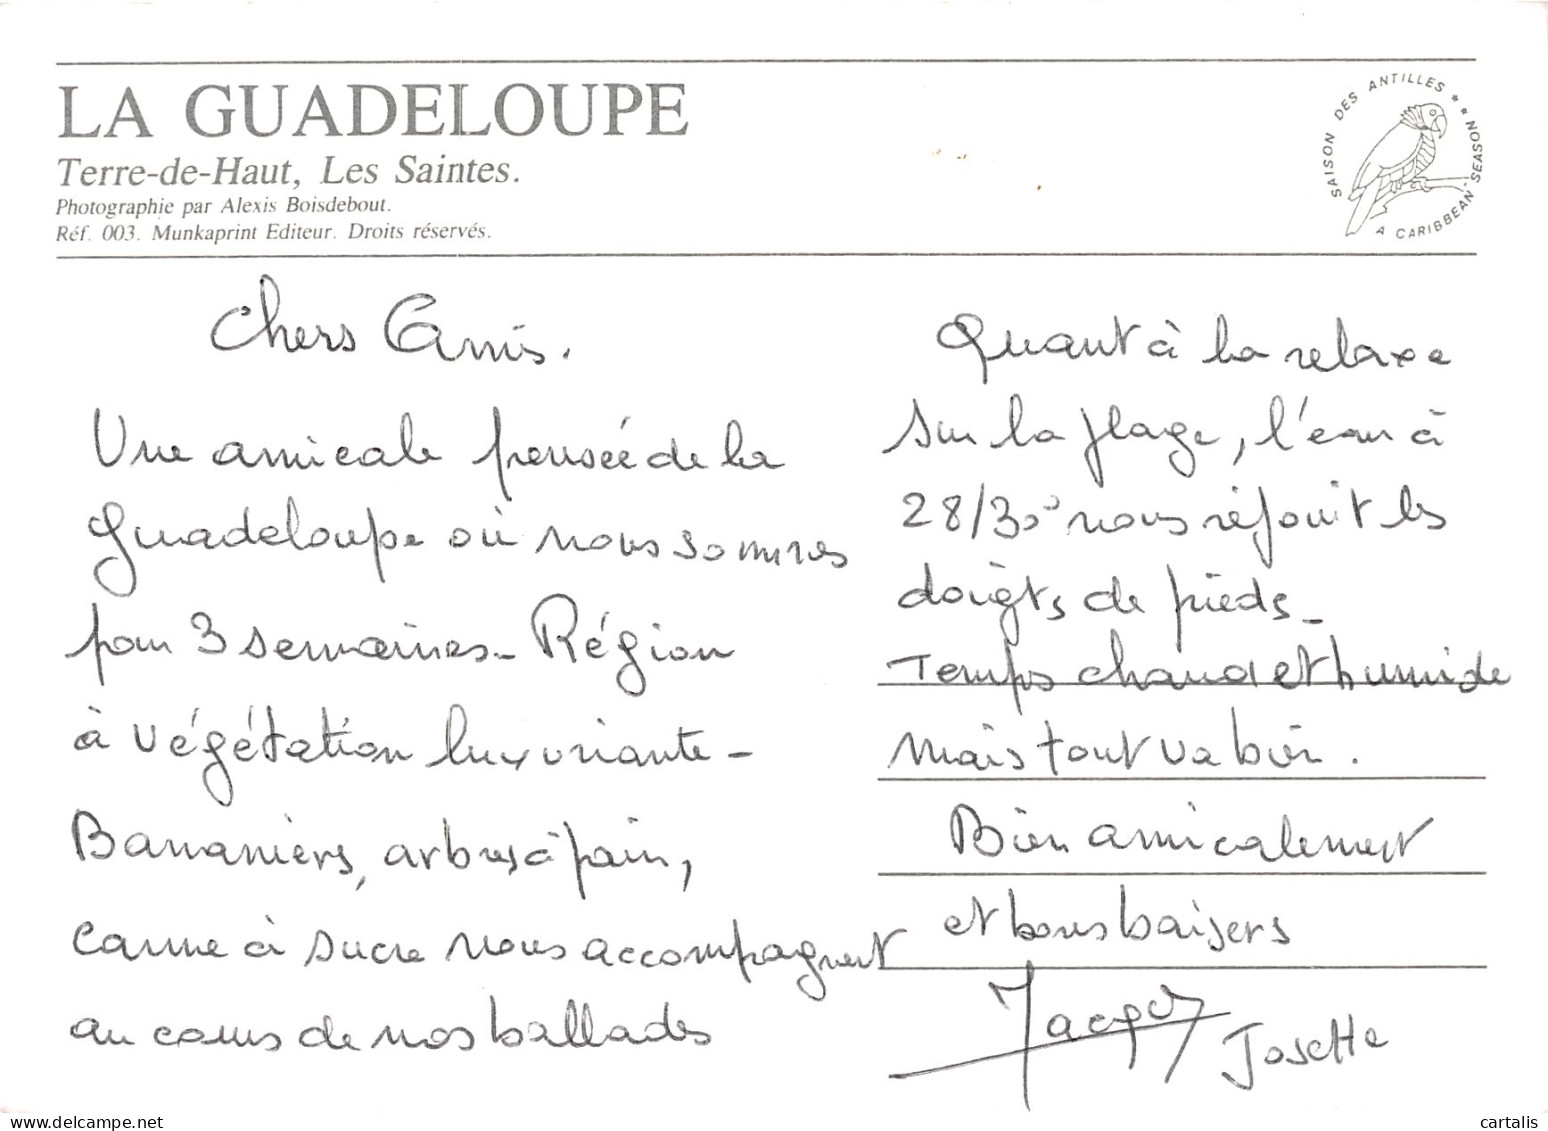 LA GUADELOUPE
Terre-de-Haut, Les Saintes.
Photographie par Alexis Boisdebout.
Réf. 003. Munkaprint Editeur. Droits réservés.
SAISON DES ANTILLES ** A CARIBBEAN SEASON
Chers Amis.
Une amicale pensée de la
Guadeloupe où nous sommes
pour 3 semaines - Région
à végétation luxuriante -
Bananiers, arbres à pain,
canne à sucre nous accompagnent
au cours de nos ballades
Quant à la relaxe
sur la plage, l'eau à
28/30° nous réjouit les
doigts de pieds -
Temps chaud et humide
mais tout va bien.
Bien amicalement
et bons baisers
Josette
cartalis